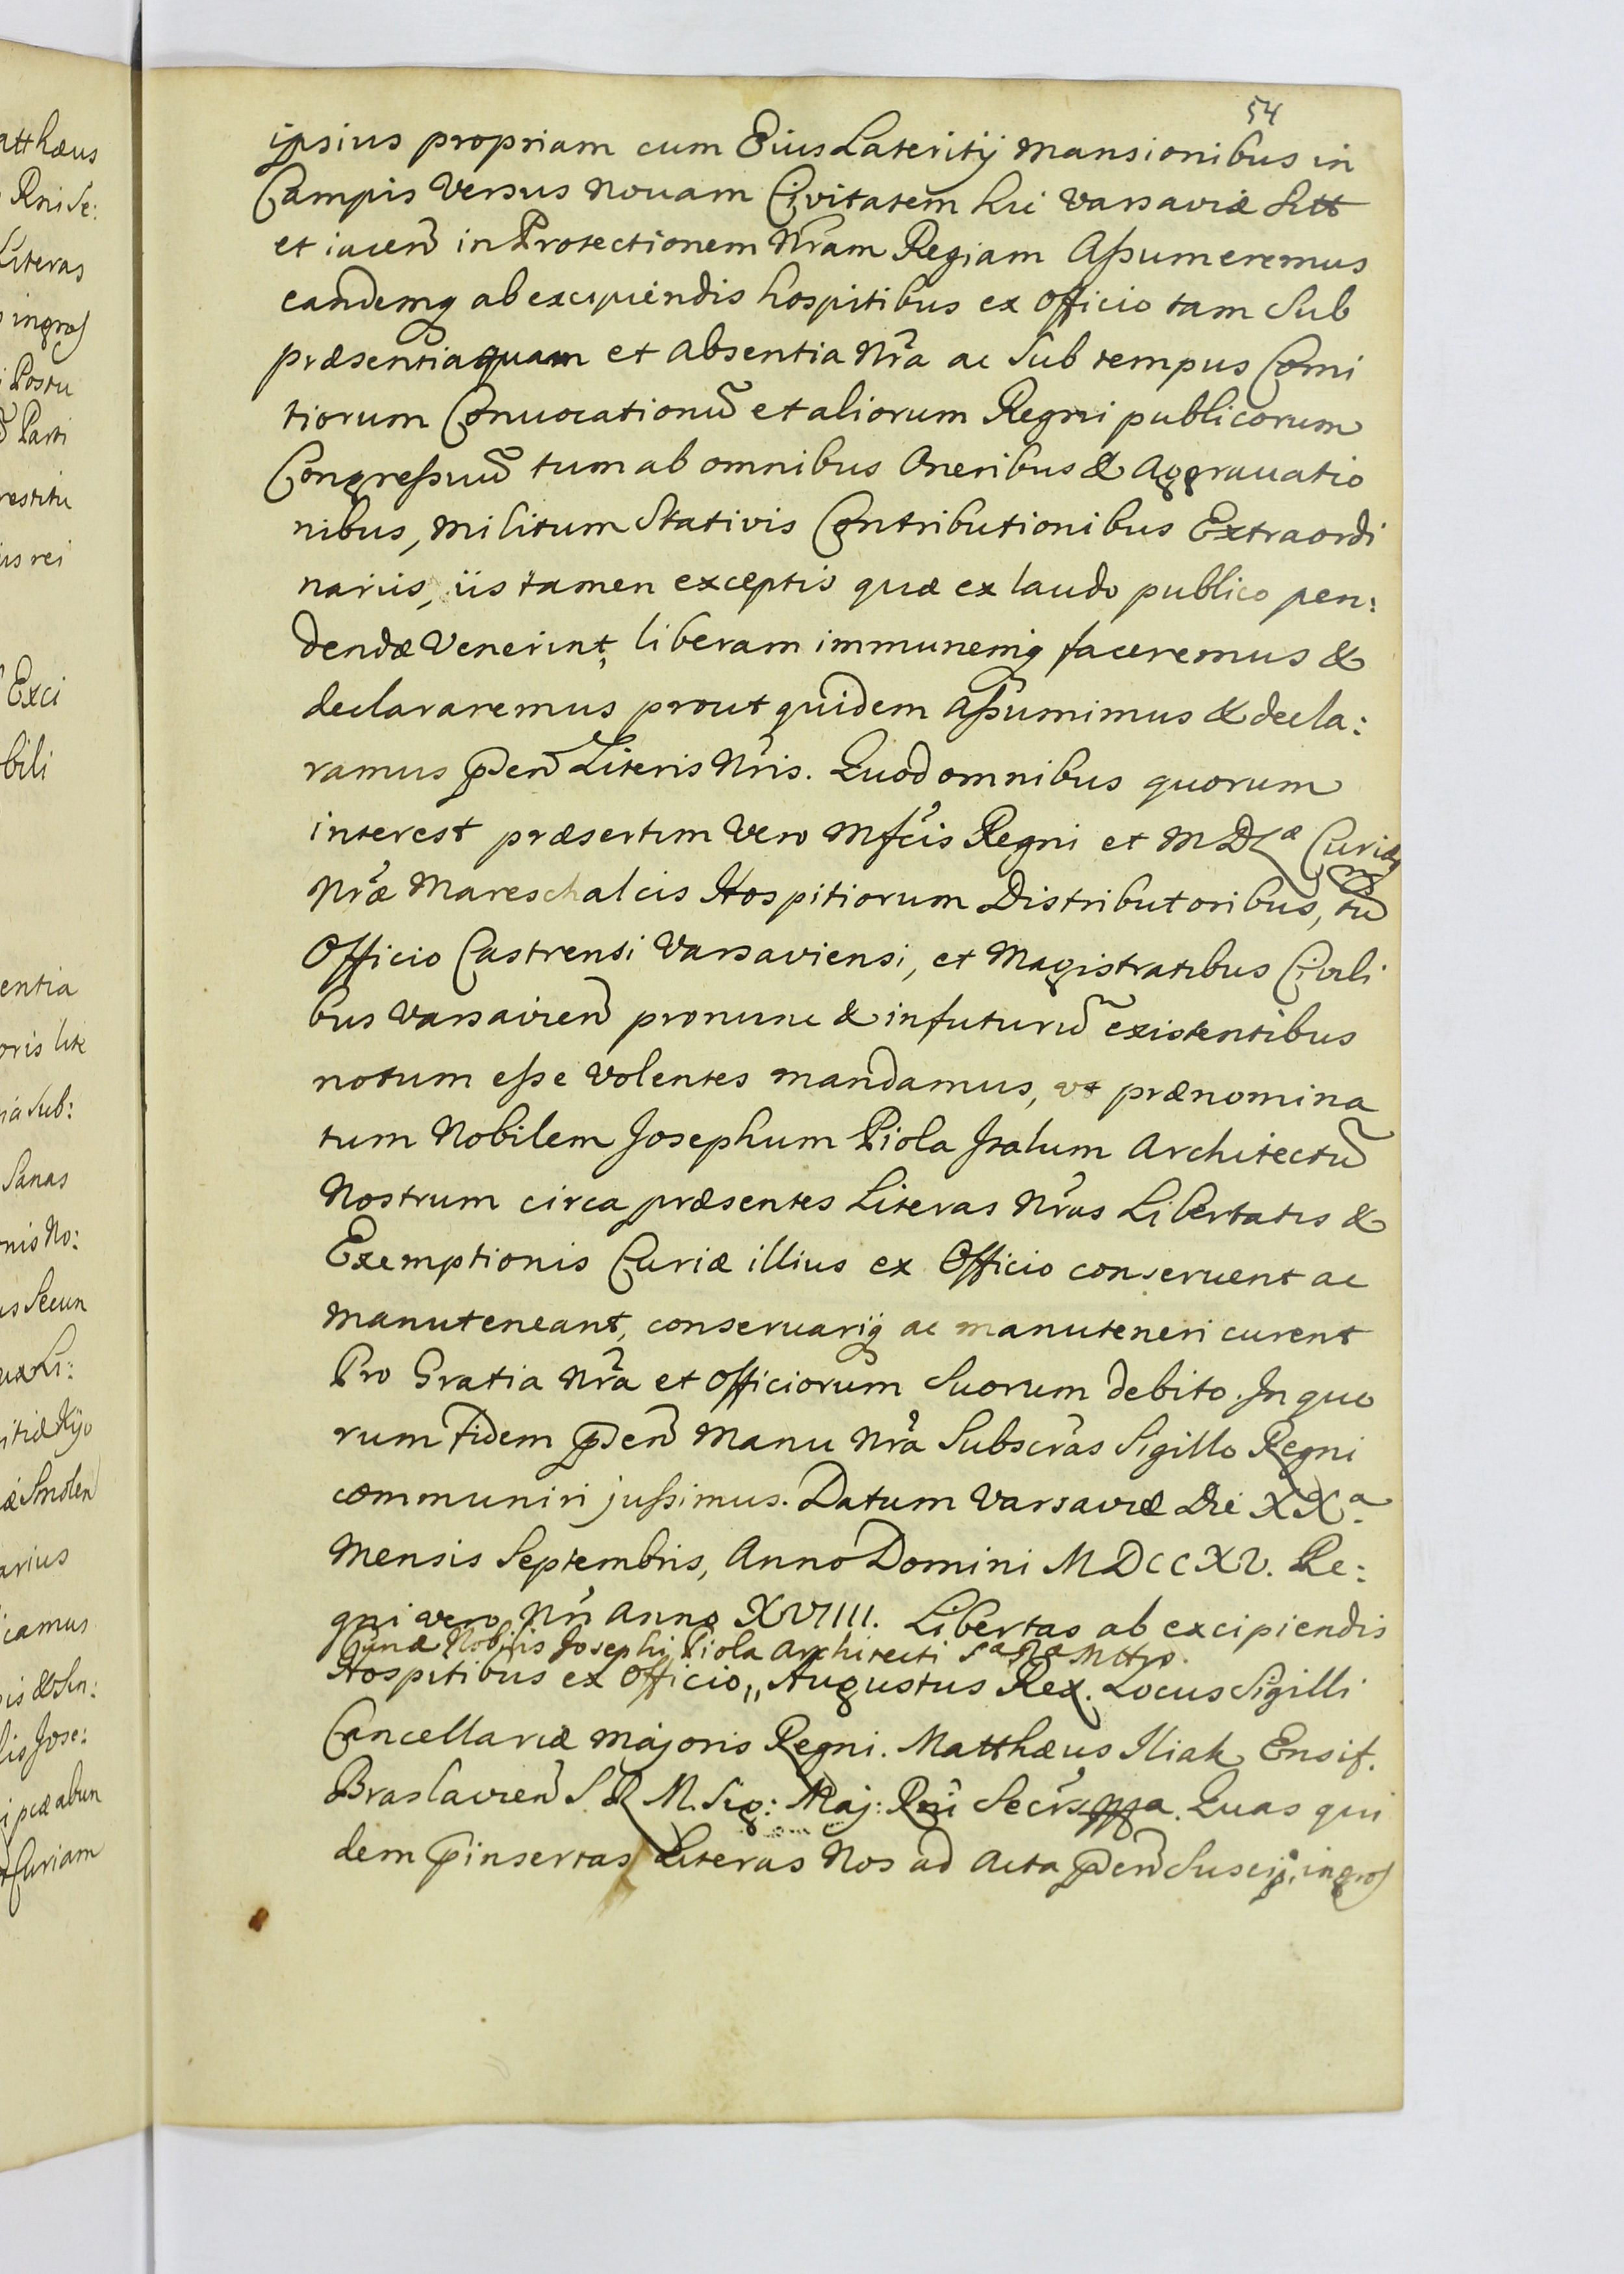 atthæus
Rni Se:
Literas
ingros
Postu
Parti
restitu
us rei
Exci
bili
entia
oris lite
ia sub:
Sanas
nis No:
us Secun
ux Li:
itiæ Kijo
æ Smolen
arius
icamus
is & Sin:
lis Jose:
i piæ abun
Curiam
54
ipsius propriam cum Eius Lateritij Mansionibus in
Campis Versus Novam Civitatem hic Varsaviæ Sitt
et iacen̄ in Protectionem Nr̃am Regiam Assumeremus
eandemq ab excipiendis hospitibus ex Officio tam Sub
præsentia quam et absentia Nr̃a ac Sub tempus Comi
tiorum Convocationũ et aliorum Regni publicorum
Congressuũ tum ab omnibus Oneribus & Aggravatio
nibus, Militum Stativis Contributionibus Extraordi
nariis, iis tamen exceptis quæ ex laudo publico pen:
dendæ Venerint, liberam immunemq faceremus &
declararemus prout quidem Assumimus & decla:
ramus p̄sen̄ Literis Nr̃is. Quod omnibus quorum
interest præsertim Vero Mfcis Regni et M D Læ Curiæ
Nr̃æ Mareschalcis Hospitiorum Distributoribus, tũ
Officio Castrensi Varsaviensi, et Magistratibus Civili
bus Varsavien̄ pronunc & in futurũ existentibus
notum esse Volentes mandamus, vt prænomina
tum Nobilem Josephum Piola Italum Architectũ
Nostrum circa præsentes Literas Nr̃as Libertatis &
Exemptionis Curiæ illius ex Officio conservent ac
manuteneant, conservariq ac manuteneri curent
Pro Gratia Nr̃a et Officiorum Suorum debito. In quo
rum fidem p̄sen̄ Manu Nr̃a Subscr̃as Sigillo Regni
communiri jussimus. Datum Varsaviæ Die XXa
Mensis Septembris, Anno Domini MDCCXV. Re:
gni vero Nr̃i Anno XVIIII. Libertas ab excipiendis
Nobilis Josephi Piola Architecti Sæ Ræ Mttis.
Hospitibus ex Officio,, Augustus Rex. Locus Sigilli
Cancellariæ majoris Regni. Matthæus Iliak Ensif.
Braslavien̄ S R M. Sig: Maj: Rni Secr̃s mpa. Quas qui
dem p̄insertas Literas Nos ad Acta p̄sen̄ Suscip. ingros